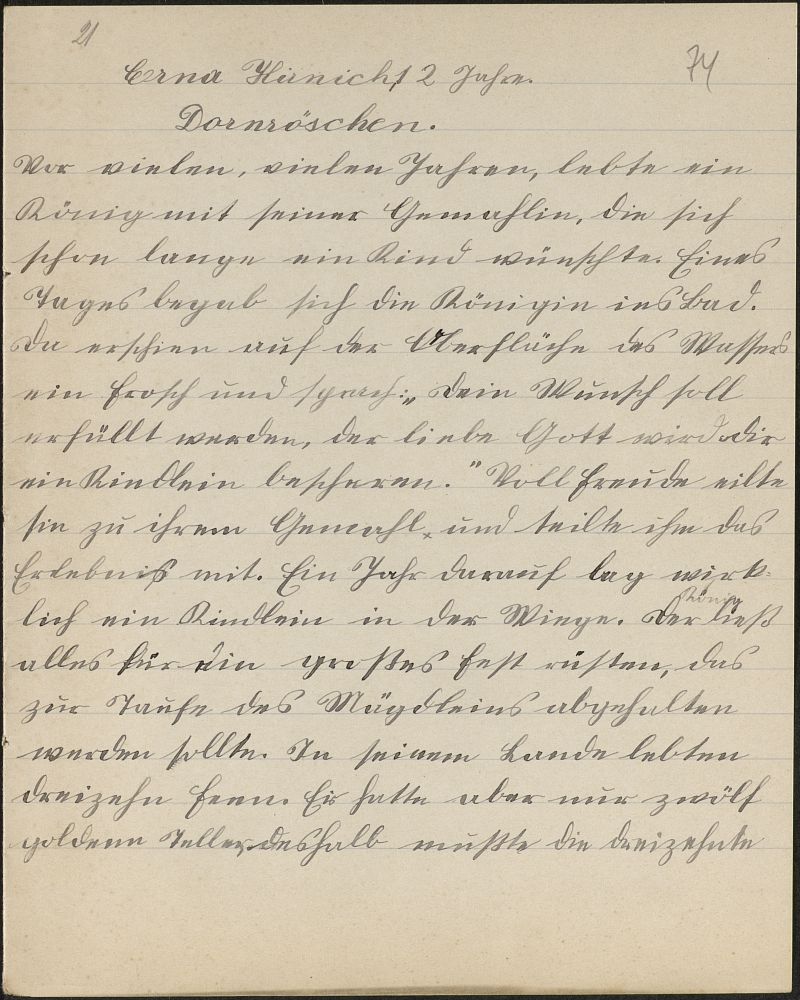 21
74
Erna Hirnich, 12 Jahre.
Dornröschen.
Vor vielen, vielen Jahren, lebte ein
König mit seiner Gemahlin, die sich
schon lange ein Kind wünschte. Eines
Tages begab sich die Königin ins Bad.
Da erschien auf der Oberfläche des Wassers
ein Frosch und sprach: „Dein Wunsch soll
erfüllt werden, der liebe Gott wird dir
ein Kindlein bescheren." Voll Freude eilte
sie zu ihrem Gemahl, und teilte ihm das
Erlebnis mit. Ein Jahr darauf lag wirk-
lich ein Kindlein in der Wiege. Der König ließ
alles für ein großes Fest rüsten, das
zur Taufe des Mägdleins abgehalten
werden sollte. In seinem Lande lebten
dreizehn Feen. Er hatte aber nur zwölf
goldene Teller, deshalb mußte die dreizehnte